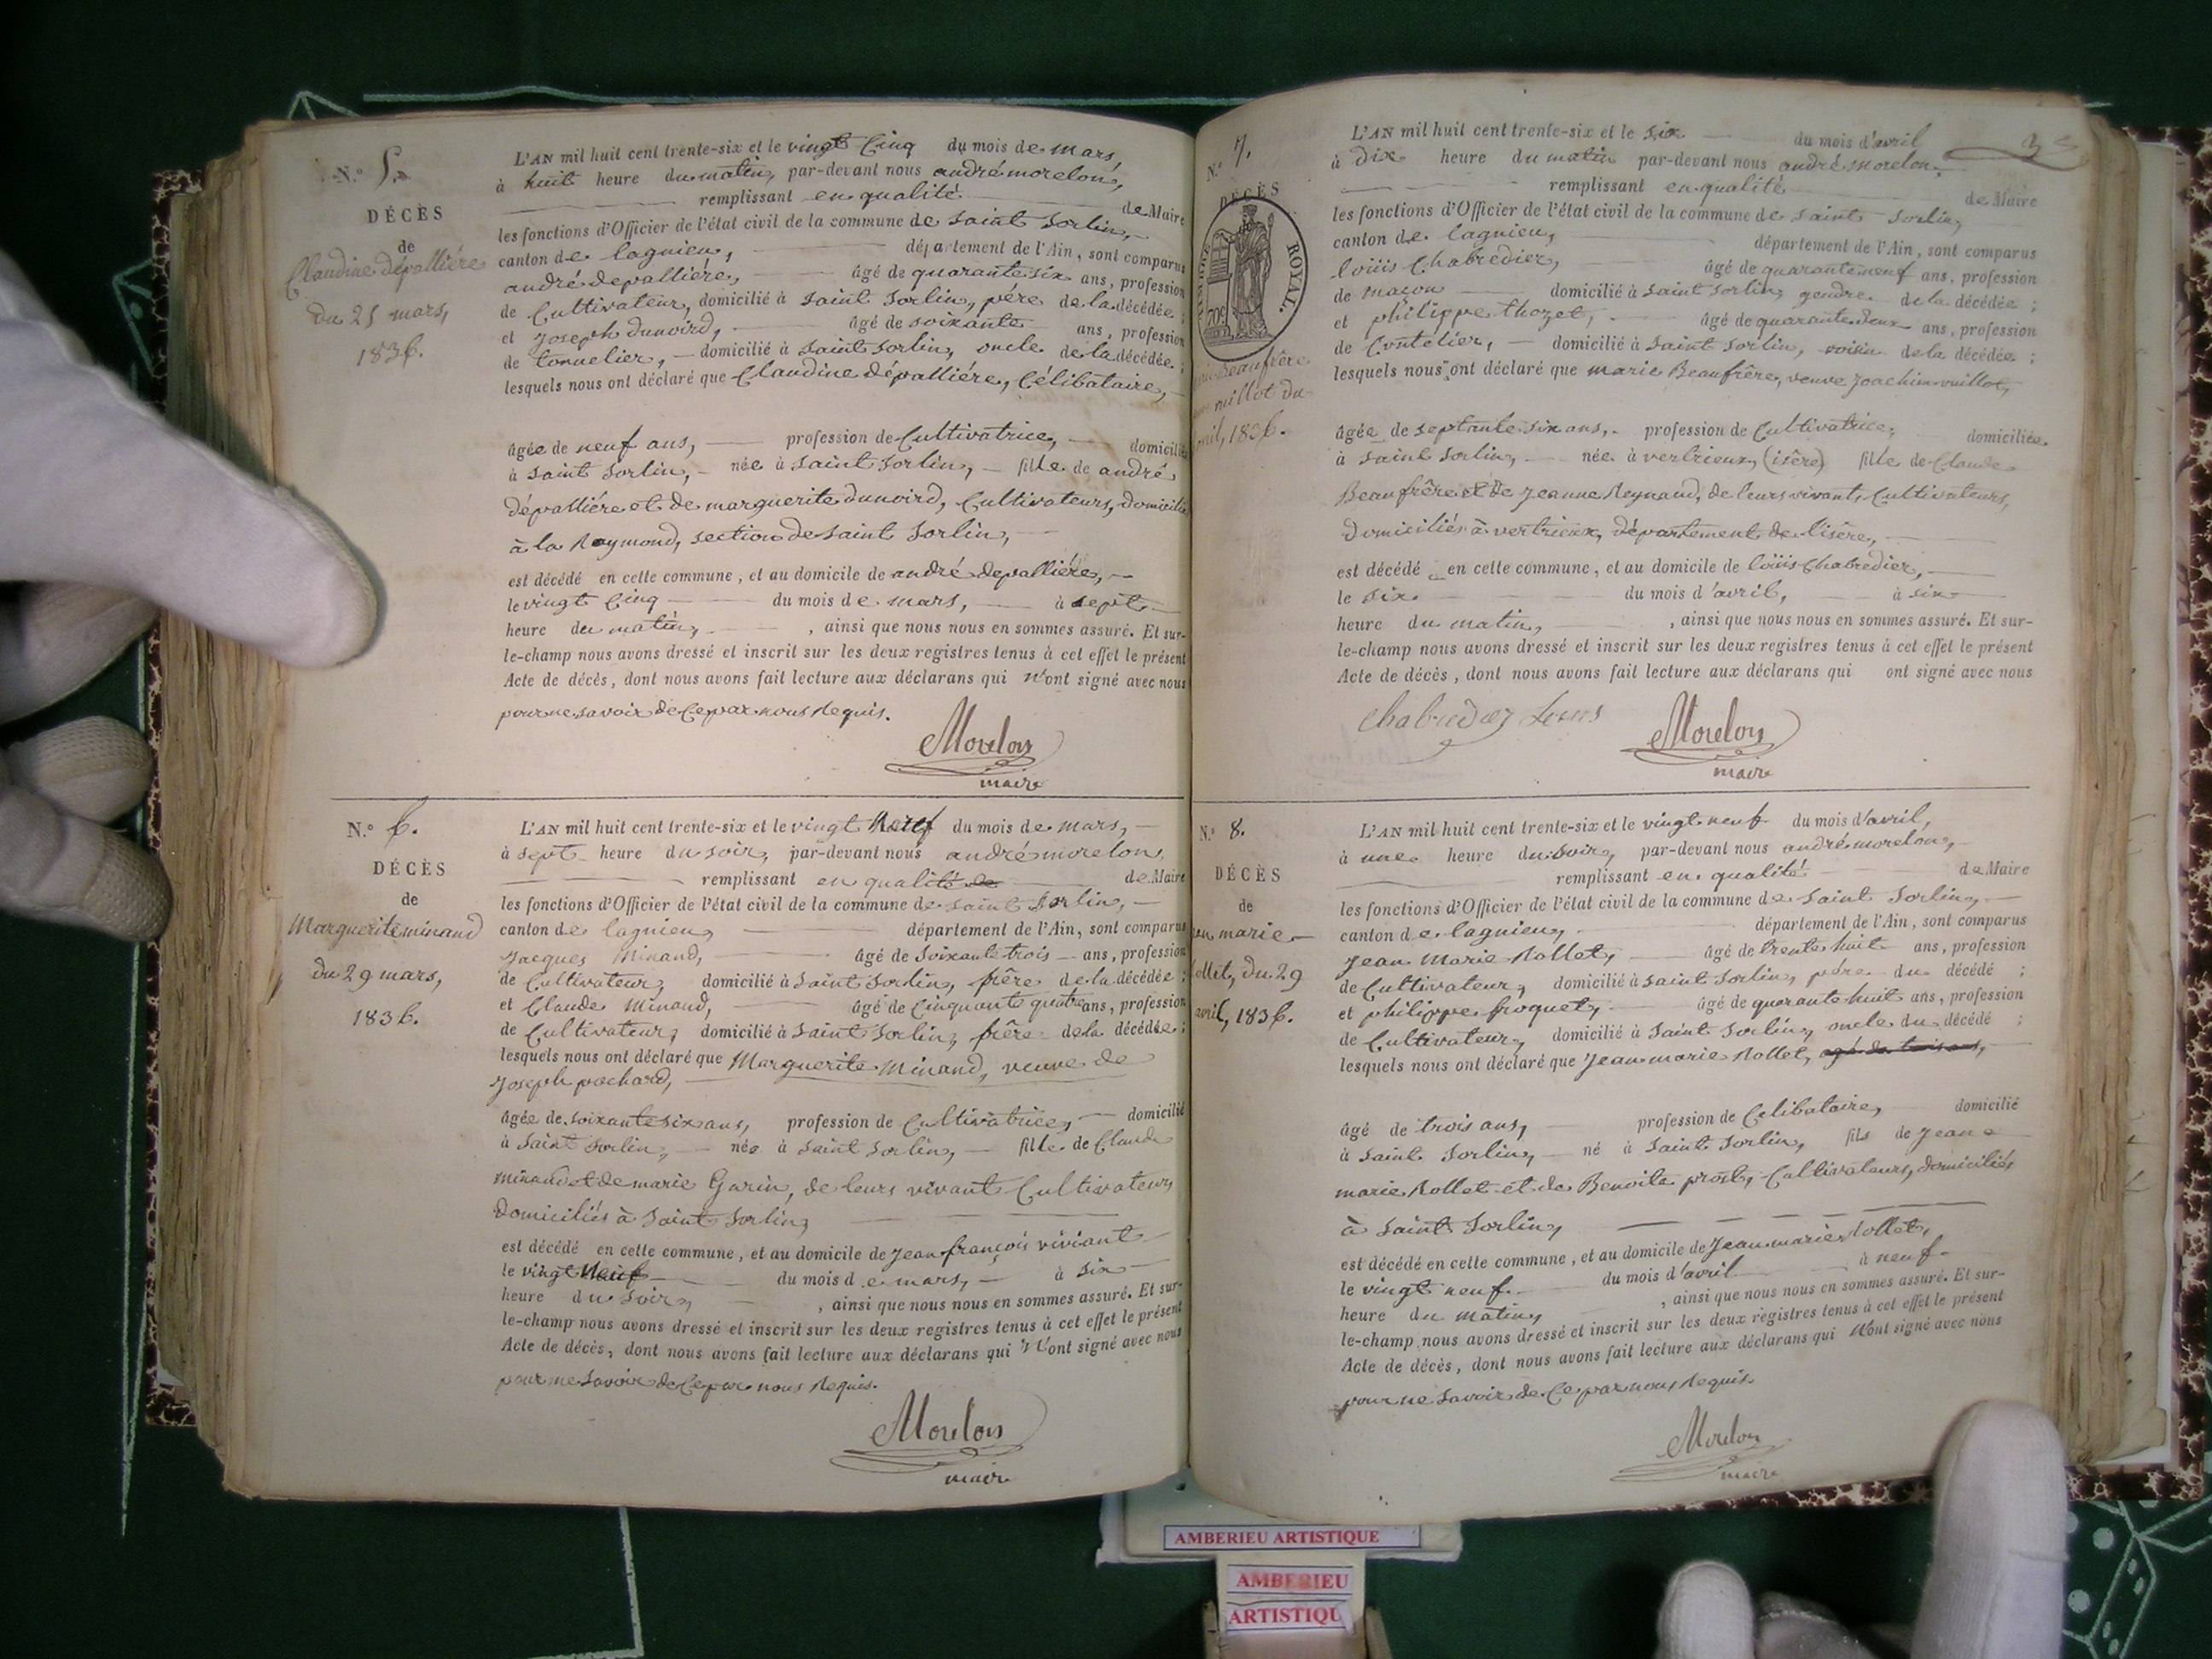 N.° 5.
DÉCÈS
de
Claudine dépallière
du 25 mars,
1836.
L'AN mil huit cent trente-six et le vingt Cinq du mois de mars,
à huit heure du matin, par-devant nous andré morelon,
remplissant en qualité de Maire
les fonctions d'Officier de l'état civil de la commune de Saint Sorlin,
canton de lagnieu, département de l'Ain, sont comparus
andré depallière, âgé de quarante six ans, profession
de Cultivateur, domicilié à Saint Sorlin, père de la décédée ;
et Joseph dunoird, âgé de soixante ans, profession
de tonnelier, domicilié à Saint Sorlin, oncle de la décédée ;
lesquels nous ont déclaré que Claudine dépallière, Célibataire,
âgée de neuf ans, profession de Cultivatrice, domicilié
à Saint Sorlin, née à Saint Sorlin, fille de andré
dépallière et de marguerite dunoird, Cultivateurs, domicilié
à la Raymond, section de Saint Sorlin,
est décédé en cette commune, et au domicile de andré depallière,
le vingt Cinq du mois de mars, à sept
heure du matin, , ainsi que nous nous en sommes assuré. Et sur-
le-champ nous avons dressé et inscrit sur les deux registres tenus à cet effet le présent
Acte de décès, dont nous avons fait lecture aux déclarans qui n'ont signé avec nous
pour ne savoir de Ce par nous Requis.
Morelon
maire
N.° 6.
DÉCÈS
de
Marguerite minand
du 29 mars,
1836.
L'AN mil huit cent trente-six et le vingt Neuf du mois de mars,
à sept heure du soir, par-devant nous andré morelon,
remplissant en qualité de de Maire
les fonctions d'Officier de l'état civil de la commune de Saint Sorlin,
canton de lagnieu, département de l'Ain, sont comparus
Jacques Minand, âgé de Soixante trois ans, profession
de Cultivateur, domicilié à Saint Sorlin, frère de la décédée ;
et Claude Minand, âgé de Cinquante quatre ans, profession
de Cultivateur, domicilié à Saint Sorlin, frère de la décédée ;
lesquels nous ont déclaré que Marguerite Minand, veuve de
Joseph pochard,
âgée de soixante six ans, profession de Cultivatrice, domicilié
à Saint Sorlin, née à Saint Sorlin, fille de Claude
minand et de marie Garin, de leurs vivant Cultivateurs
domiciliés à Saint Sorlin,
est décédé en cette commune, et au domicile de Jean françois viviant
le vingt Neuf du mois de mars, à six
heure du Soir, , ainsi que nous nous en sommes assuré. Et sur-
le-champ nous avons dressé et inscrit sur les deux registres tenus à cet effet le présent
Acte de décès, dont nous avons fait lecture aux déclarans qui N'ont signé avec nous
pour ne savoir de Ce par nous Requis.
Morelon
maire
3
N.° 7.
DÉCÈS
ROYAL.
Beaufrère
millot du
avril, 1836.
L'AN mil huit cent trente-six et le six du mois d'avril
à dix heure du matin par-devant nous andré morelon,
remplissant en qualité de Maire
les fonctions d'Officier de l'état civil de la commune de Saint Sorlin,
canton de lagnieu, département de l'Ain, sont comparus
loüis Chabredier, âgé de quarante neuf ans, profession
de maçon domicilié à Saint Sorlin, gendre de la décédée ;
et philippe thozet, âgé de quarante deux ans, profession
de Coutelier, domicilié à Saint Sorlin, voisin de la décédée ;
lesquels nous ont déclaré que marie Beaufrère, veuve Joachim millot,
âgée de septante six ans, profession de Cultivatrice, domiciliée
à Saint Sorlin, née à vertrieux, (isère) fille de Claude
Beaufrère et de Jeanne Reynaud, de leurs vivants, Cultivateurs,
Domiciliés à vertrieux, département de lisère,
est décédé en cette commune, et au domicile de loüis Chabredier,
le six du mois d'avril, à six
heure du matin, , ainsi que nous nous en sommes assuré. Et sur-
le-champ nous avons dressé et inscrit sur les deux registres tenus à cet effet le présent
Acte de décès, dont nous avons fait lecture aux déclarans qui ont signé avec nous
Morelon
maire
N.° 8.
DÉCÈS
de
jean marie
Rollet, du 29
avril, 1836.
L'AN mil huit cent trente-six et le vingt neuf du mois d'avril,
à une heure du soir, par-devant nous andré morelon,
remplissant en qualité de Maire
les fonctions d'Officier de l'état civil de la commune de Saint Sorlin,
canton de lagnieu, département de l'Ain, sont comparus
Jean Marie Rollet, âgé de trente huit ans, profession
de Cultivateur, domicilié à Saint Sorlin, père du décédé ;
et philippe froquet, âgé de quarante huit ans, profession
de Cultivateur, domicilié à Saint Sorlin, oncle du décédé ;
lesquels nous ont déclaré que Jean marie Rollet, agé de trois ans,
âgé de trois ans, profession de Célibataire, domicilié
à Saint Sorlin, né à Saint Sorlin, fils de Jean
marie Rollet et de Benoite prost, Cultivateurs, domiciliés
à Saint Sorlin,
est décédé en cette commune, et au domicile de Jean marie Rollet,
le vingt neuf du mois d'avril à neuf
heure du matin, , ainsi que nous nous en sommes assuré. Et sur-
le-champ nous avons dressé et inscrit sur les deux registres tenus à cet effet le présent
Acte de décès, dont nous avons fait lecture aux déclarans qui N'ont signé avec nous
pour ne savoir de Ce par nous Requis.
Morelon
maire
AMBERIEU ARTISTIQUE
AMBERIEU
ARTISTIQU